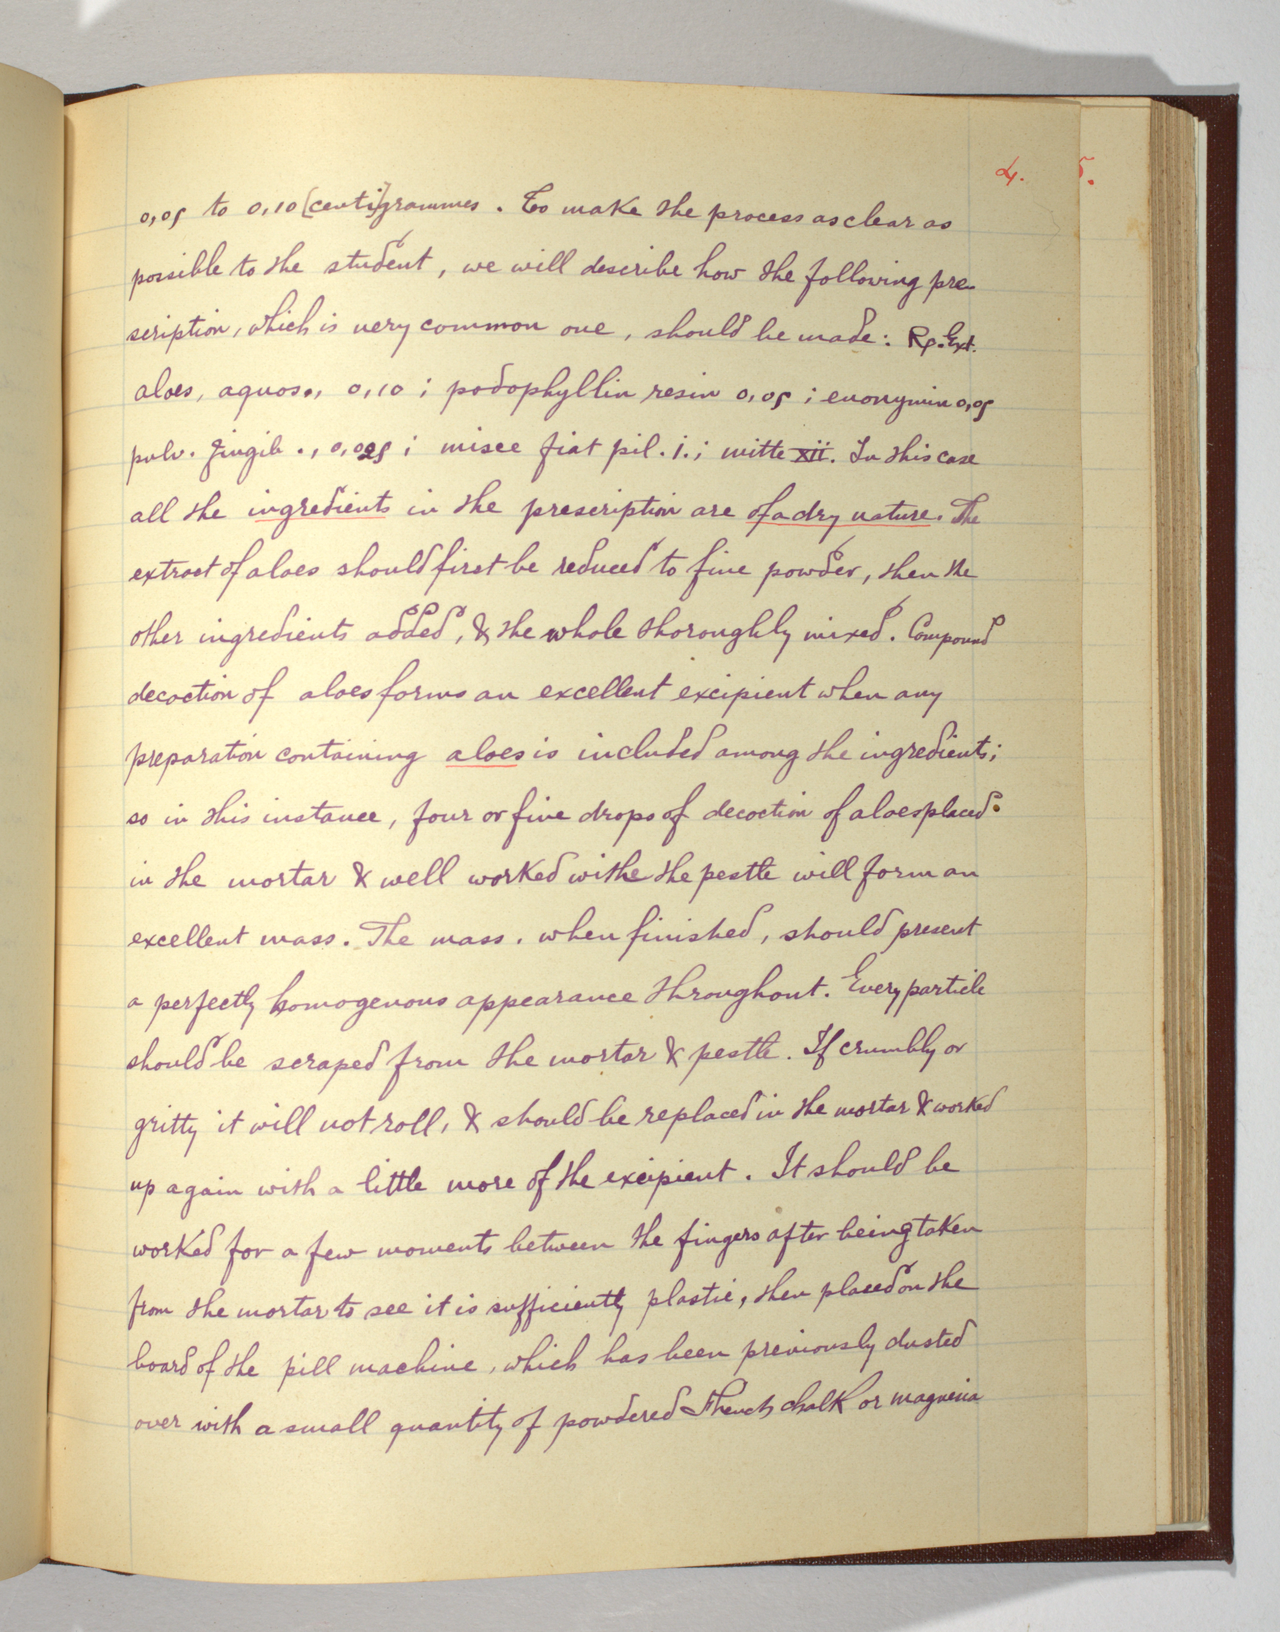 4. 5.
0,05 to 0,10 [centi]grammes. To make the process as clear as
possible to the student, we will describe how the following pre-
scription, which is very common one, should be made: Rp. Ext.
aloes, aquos., 0,10; podophyllin resin 0,05; euonymin 0,05
pulv. Zingib., 0,025; misce fiat pil. j.; mitte xii. In this case
all the ingredients in the prescription are of a dry nature. The
extract of aloes should first be reduced to fine powder, then the
other ingredients added, & the whole thoroughly mixed. Compound
decoction of aloes forms an excellent excipient when any
preparation containing aloes is included among the ingredients;
so in this instance, four or five drops of decoction of aloes placed
in the mortar & well worked withe the pestle will form an
excellent mass. The mass, when finished, should present
a perfectly homogenous appearance throughout. Every particle
should be scraped from the mortar & pestle. If crumbly or
gritty it will not roll, & should be replaced in the mortar & worked
up again with a little more of the excipient. It should be
worked for a few moments between the fingers after being taken
from the mortar to see it is sufficiently plastic, then placed on the
board of the pill machine, which has been previously dusted
over with a small quantity of powdered French chalk or magnesia